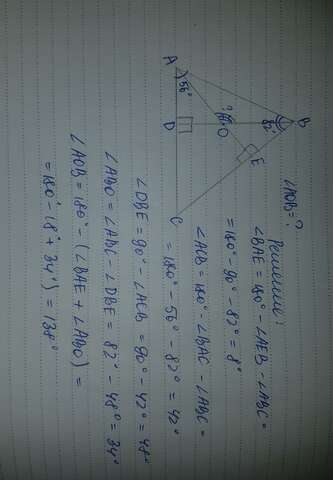 B
82°
E
O
?
56°
A
D
C
∠AOB = ?
Решение:
∠BAE = 180° - ∠AEB - ∠ABC =
= 180° - 90° - 82° = 8°
∠ACB = 180° - ∠BAC - ∠ABC =
= 180° - 56° - 82° = 42°
∠DBE = 90° - ∠ACB = 90° - 42° = 48°
∠ABO = ∠ABC - ∠DBE = 82° - 48° = 34°
∠AOB = 180° - (∠BAE + ∠ABO) =
= 180° - (8° + 34°) = 138°